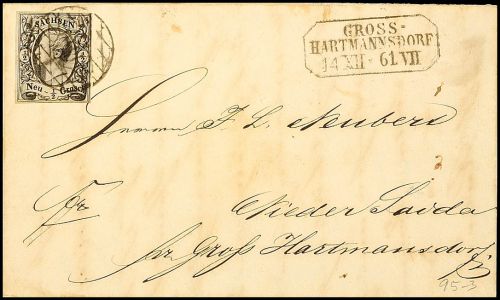 SACHSEN
Neu - ½ Grosch.
GROSS-
HARTMANNSDORF
14 XII - 61. VII
Herrn F. L. Neubert
Fr.
Nieder Saida
pr. Gross Hartmansdorf
95-3